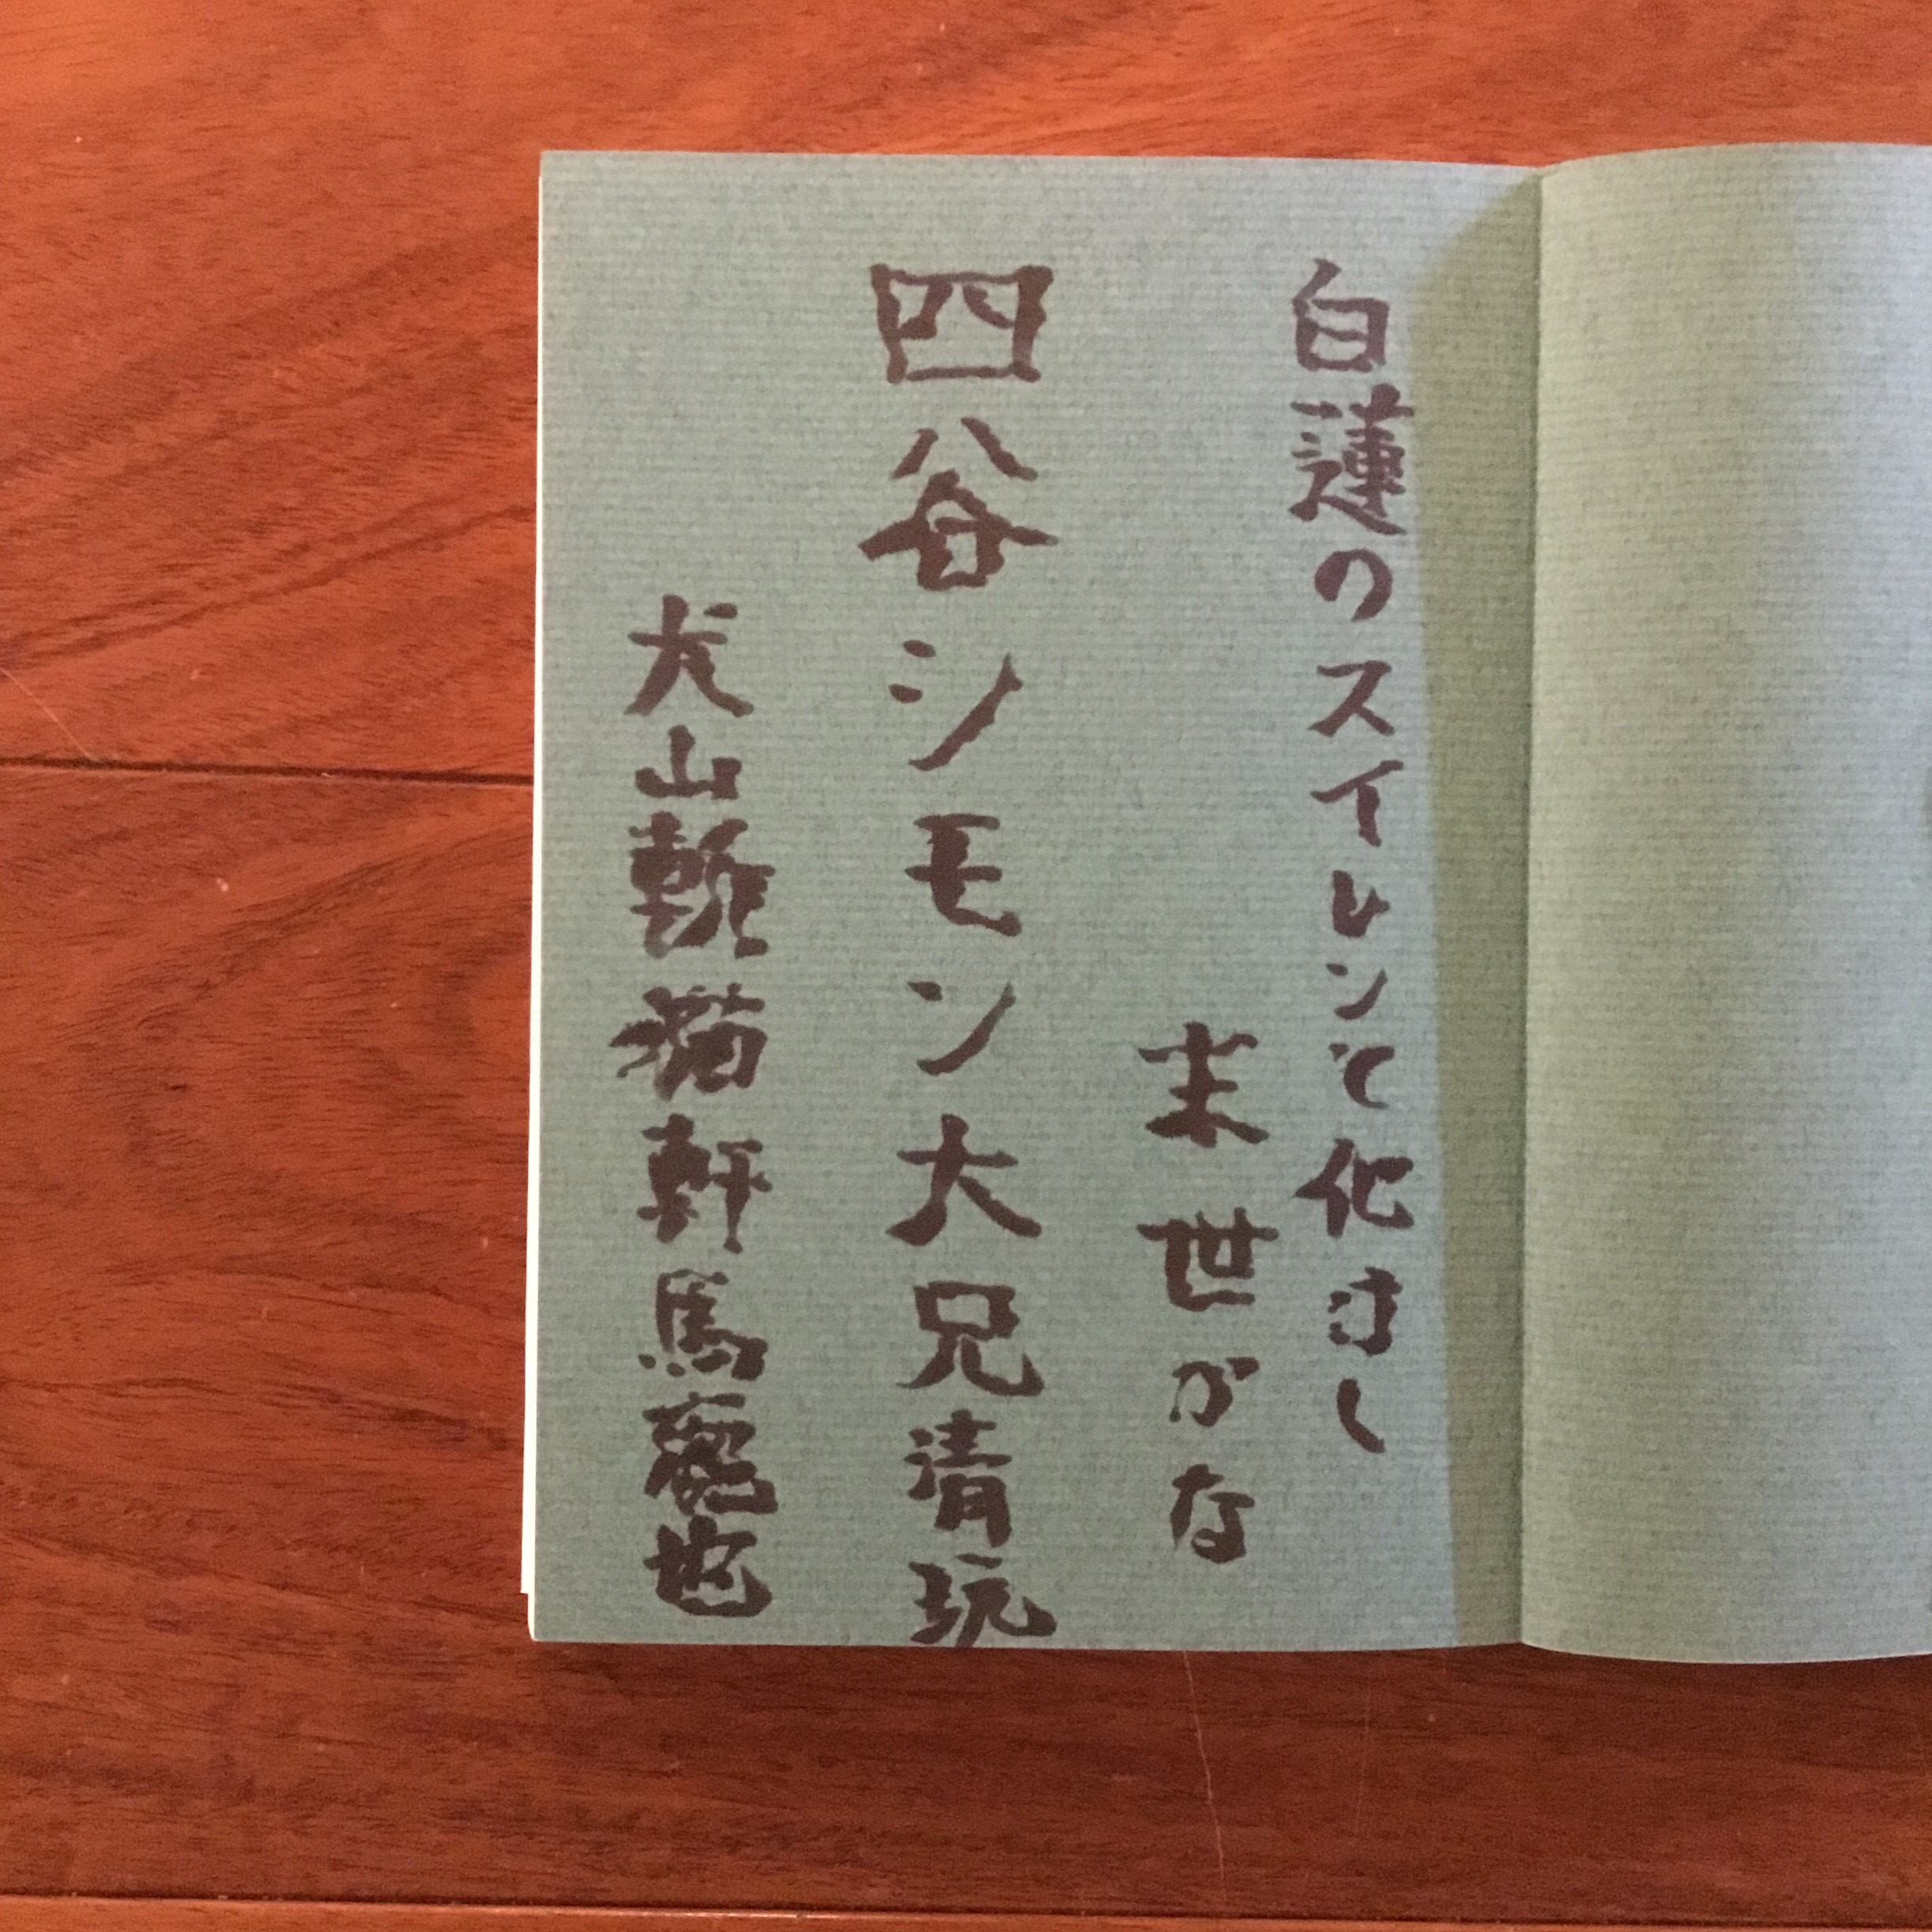 白蓮のスイレンと化けし
末世かな
四谷シモン大兄清玩
犬山猫軒馬鹿